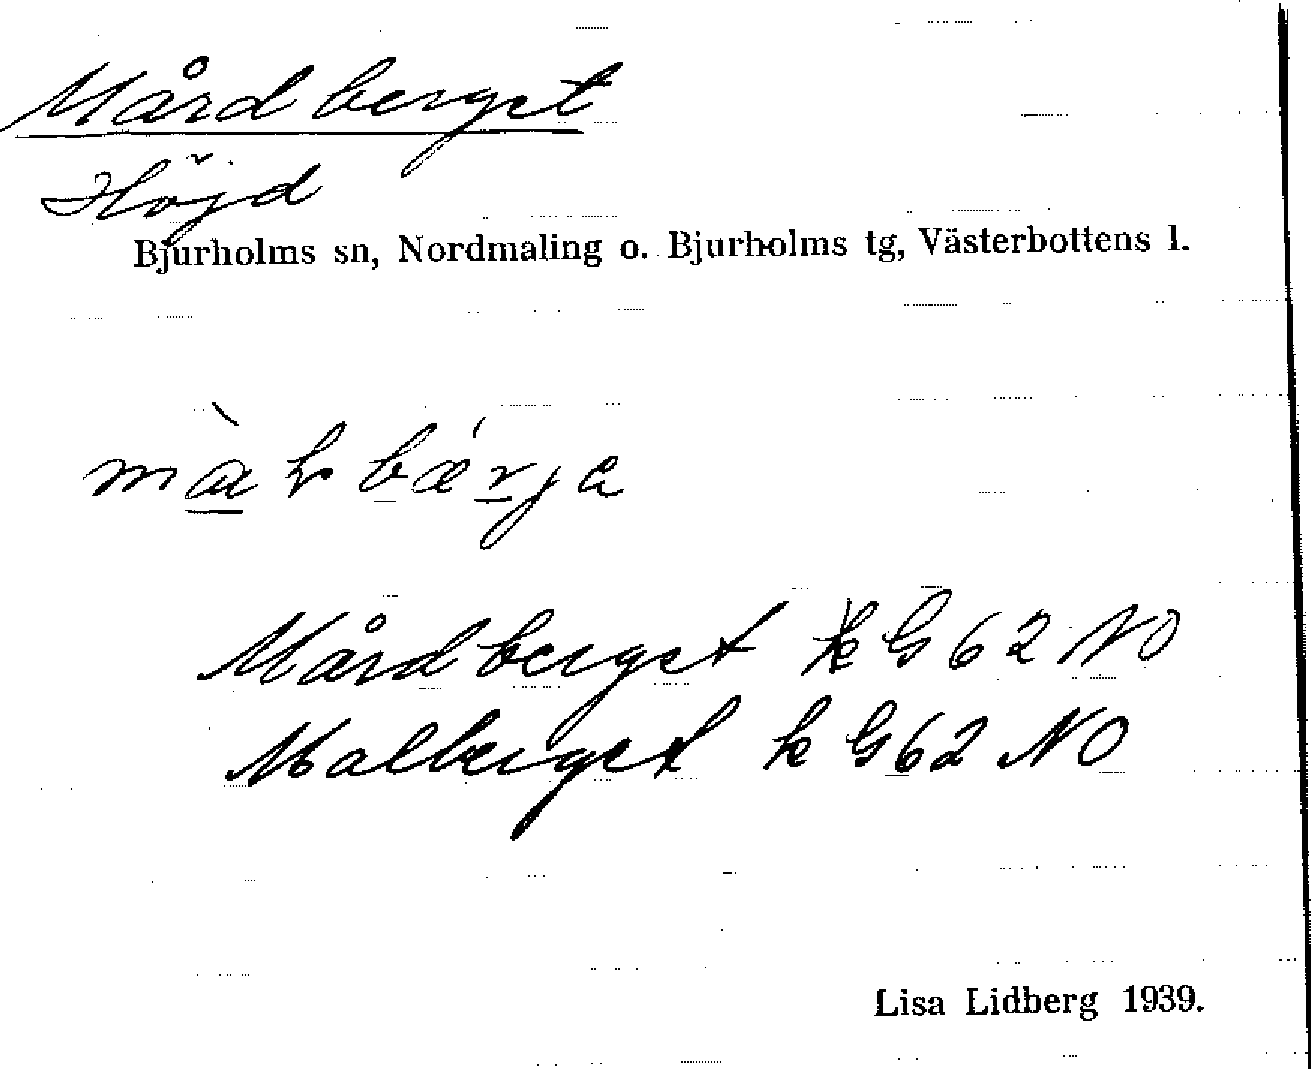 Mårdberget
Höjd
Bjurholms sn, Nordmaling o. Bjurholms tg, Västerbottens l.
Mårdberget k G 62 NO
Malberget k G 62 NO
Lisa Lidberg 1939.